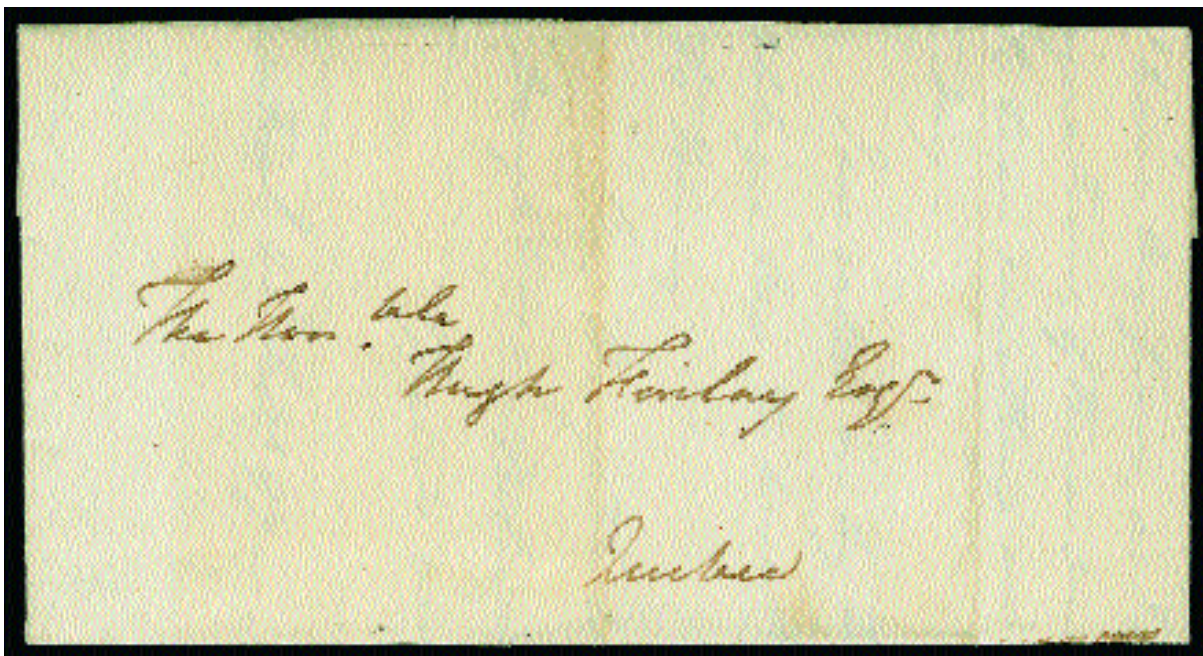 The Hon.ble
Hugh Finlay Esqr.
Quebec